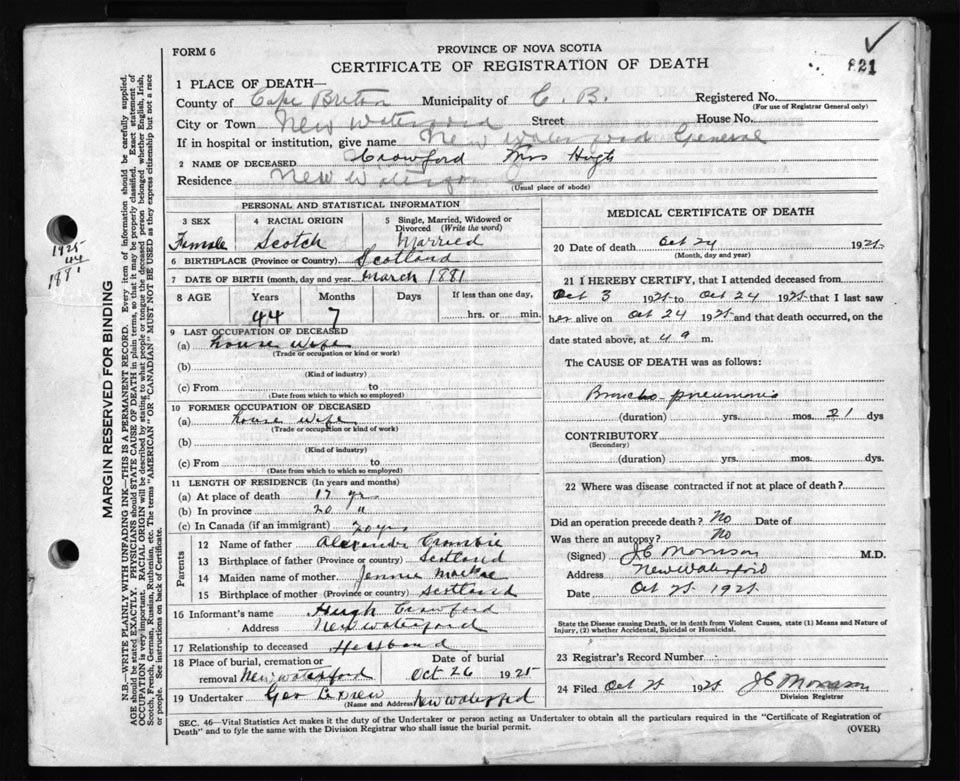 FORM 6
PROVINCE OF NOVA SCOTIA
CERTIFICATE OF REGISTRATION OF DEATH
821
1 PLACE OF DEATH—
County of Cape Breton Municipality of C. B. Registered No.
(For use of Registrar General only)
City or Town New Waterford Street House No.
If in hospital or institution, give name New Waterford General
2 NAME OF DECEASED Crawford Mrs Hugh
Residence New Waterford
(Usual place of abode)
PERSONAL AND STATISTICAL INFORMATION
3 SEX Female
4 RACIAL ORIGIN Scotch
5 Single, Married, Widowed or Divorced (Write the word) Married
6 BIRTHPLACE (Province or Country) Scotland
7 DATE OF BIRTH (month, day and year March 1881
8 AGE Years Months Days If less than one day,
44 7 hrs. or min.
9 LAST OCCUPATION OF DECEASED
(a) house wife
(Trade or occupation or kind or work)
(b)
(Kind of industry)
(c) From to
(Date from which to which so employed)
10 FORMER OCCUPATION OF DECEASED
(a) house wife
(Trade or occupation or kind of work)
(b)
(Kind of industry)
(c) From to
(Date from which to which so employed)
11 LENGTH OF RESIDENCE (In years and months)
(a) At place of death 17 yrs
(b) In province 20 "
(c) In Canada (if an immigrant) 20 yrs
Parents
12 Name of father Alexander Crombie
13 Birthplace of father (Province or country) Scotland
14 Maiden name of mother Jennie MacRae
15 Birthplace of mother (Province or country) Scotland
16 Informant's name Hugh Crawford
Address New Waterford
17 Relationship to deceased Husband
18 Place of burial, cremation or removal New Waterford
Date of burial Oct 26 1925
19 Undertaker Geo B Drew New Waterford
(Name and Address)
MEDICAL CERTIFICATE OF DEATH
20 Date of death Oct 24 1925
(Month, day and year)
21 I HEREBY CERTIFY, that I attended deceased from
Oct 3 1925 to Oct 24 1925 that I last saw
her alive on Oct 24 1925 and that death occurred, on the
date stated above, at 4 a m.
The CAUSE OF DEATH was as follows:
Broncho pneumonia
(duration) yrs. mos. 21 dys
CONTRIBUTORY
(Secondary)
(duration) yrs. mos. dys.
22 Where was disease contracted if not at place of death?
Did an operation precede death? No Date of
Was there an autopsy? No
(Signed) J C Morrison M.D.
Address New Waterford
Date Oct 25 1925
State the Disease causing Death, or in death from Violent Causes, state (1) Means and Nature of
Injury, (2) whether Accidental, Suicidal or Homicidal.
23 Registrar's Record Number
24 Filed Oct 25 1925 J C Morrison
Division Registrar
SEC. 46—Vital Statistics Act makes it the duty of the Undertaker or person acting as Undertaker to obtain all the particulars required in the "Certificate of Registration of
Death" and to fyle the same with the Division Registrar who shall issue the burial permit.
(OVER)
MARGIN RESERVED FOR BINDING
N.B.—WRITE PLAINLY WITH UNFADING INK—THIS IS A PERMANENT RECORD. Every item of information should be carefully supplied.
AGE should be stated EXACTLY. PHYSICIANS should STATE CAUSE OF DEATH in plain terms, so that it may be properly classified. Exact statement of
OCCUPATION is very important. RACIAL ORIGIN will be described by stating to what people or tongue the deceased person belonged whether English, Irish,
Scotch, French, German, Russian, Ruthenian, etc. The terms "AMERICAN" OR "CANADIAN" MUST NOT BE USED as they express citizenship but not a race
or people. See instructions on back of Certificate.
1925
44
1881